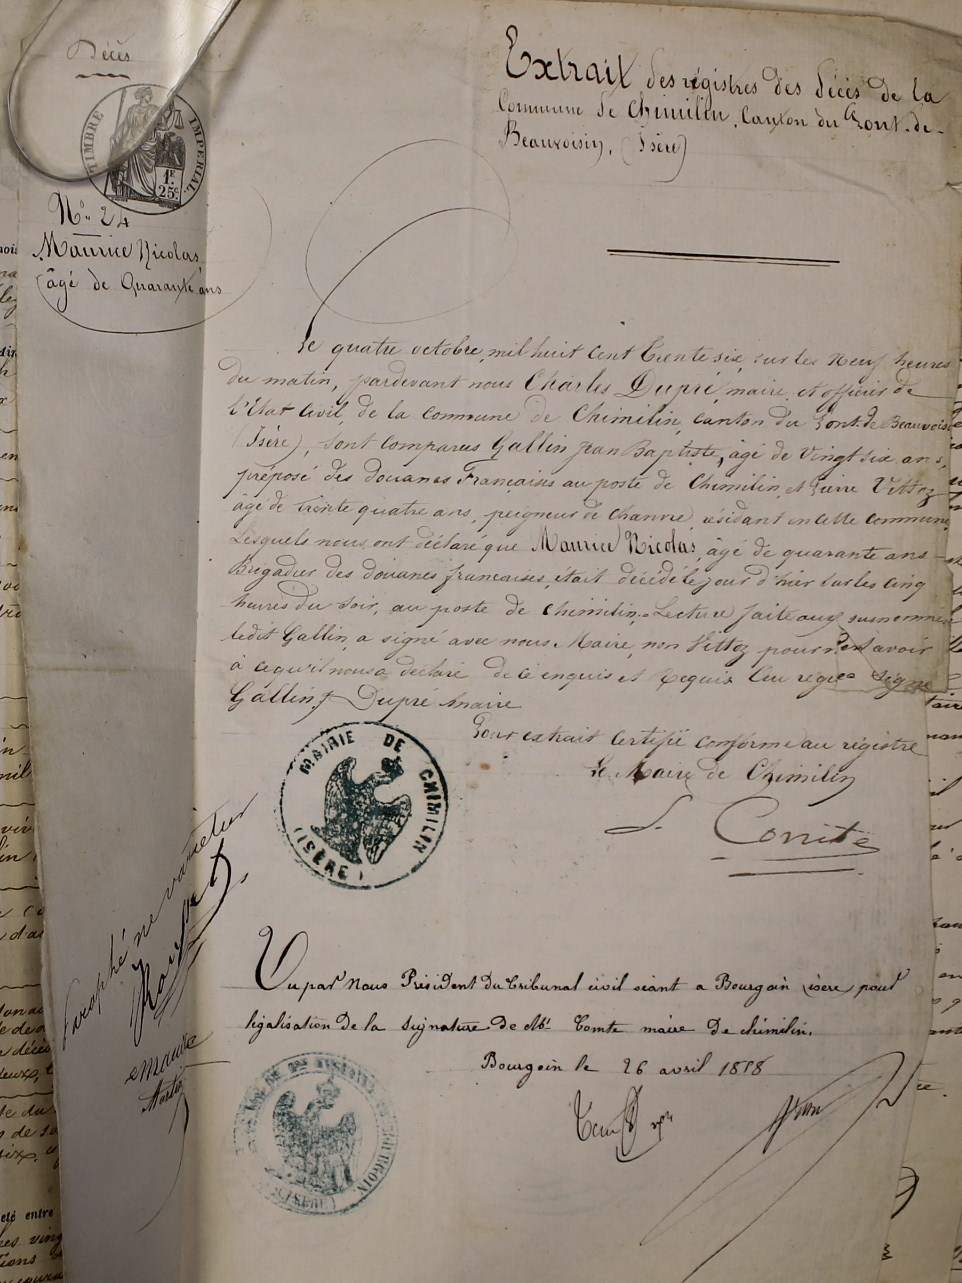 Décès
TIMBRE IMPÉRIAL
1F
25c
N° 24
Maurice Nicolas
âgé de Quarante ans
Extrait des régistres des décès de la
Commune de Chimilin, Canton du Pont-de-
Beauvoisin, (Isère)
Le quatre octobre, mil huit cent trente six, sur les neuf heures
du matin, pardevant nous Charles Dupré, maire et officier de
l'Etat civil, de la commune de Chimilin, canton du Pont-de-Beauvoisin
(Isère), sont comparus Gallin Jean Baptiste, âgé de vingt six ans,
préposé des douanes Françaises au poste de Chimilin, et Pierre Vittoz
âgé de trente quatre ans, peigneur de chanvre, résidant en cette commune,
Lesquels nous ont déclaré que Maurice Nicolas, âgé de quarante ans
Brigadier des douanes françaises, était décédé le jour d'hier sur les cinq
heures du soir, au poste de Chimilin. Lecture faite aux susnommés
ledit Gallin, a signé avec nous Maire, non Vittoz pour ne savoir
à ce qu'il nous a déclaré de ce enquis et requis. Au régre signé
Gallin, Dupré Maire
Pour extrait certifié conforme au régistre
Le Maire de Chimilin
MAIRIE DE CHIMILIN
(ISÈRE)
Paraphé ne varietur
Vu par Nous Président du tribunal civil séant a Bourgoin isère pour
légalisation de la signature de Mr Comte maire de chimilin.
Bourgoin le 26 avril 1858
BOURGOIN
(ISÈRE)